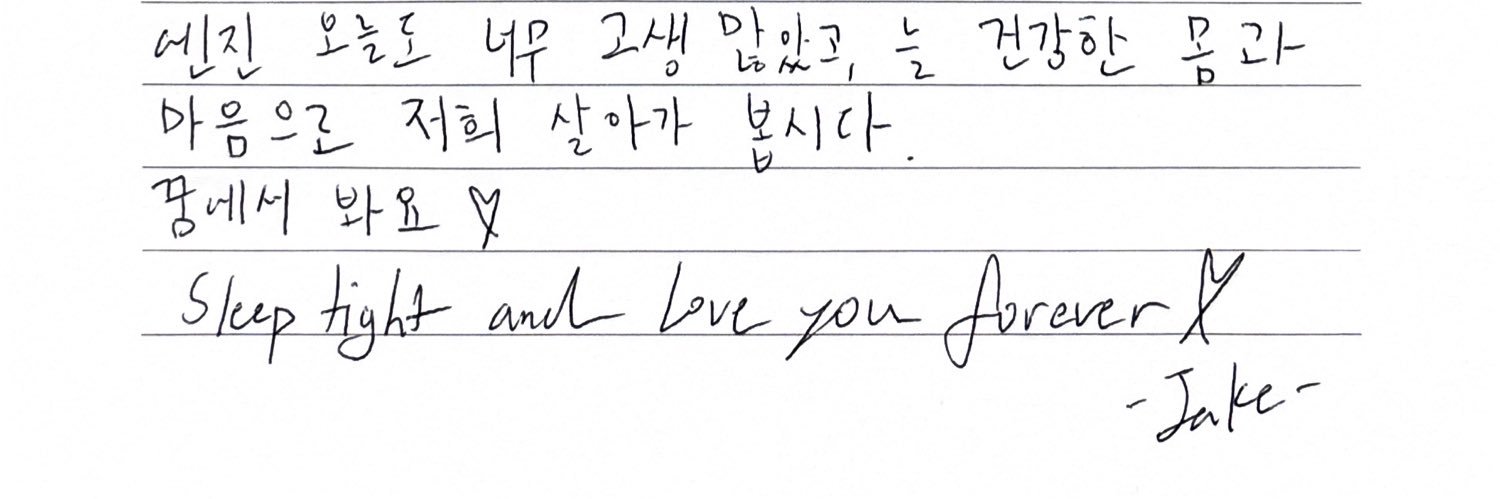 엔진 오늘도 너무 고생 많았고, 늘 건강한 몸과
마음으로 저희 살아가 봅시다.
꿈에서 봐요 ♡
Sleep tight and love you forever ♡
-Jake-